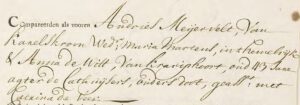 Compareerden als vooren Andries Meijervelt, Van
Karelskroon Wedr. Maria Martens, in themelijck
& Anna de Witt Van Kraejepoort, oud 43 Jaar
agter de Catuijsers, ouders doot, geast. met
Catrina de Veer